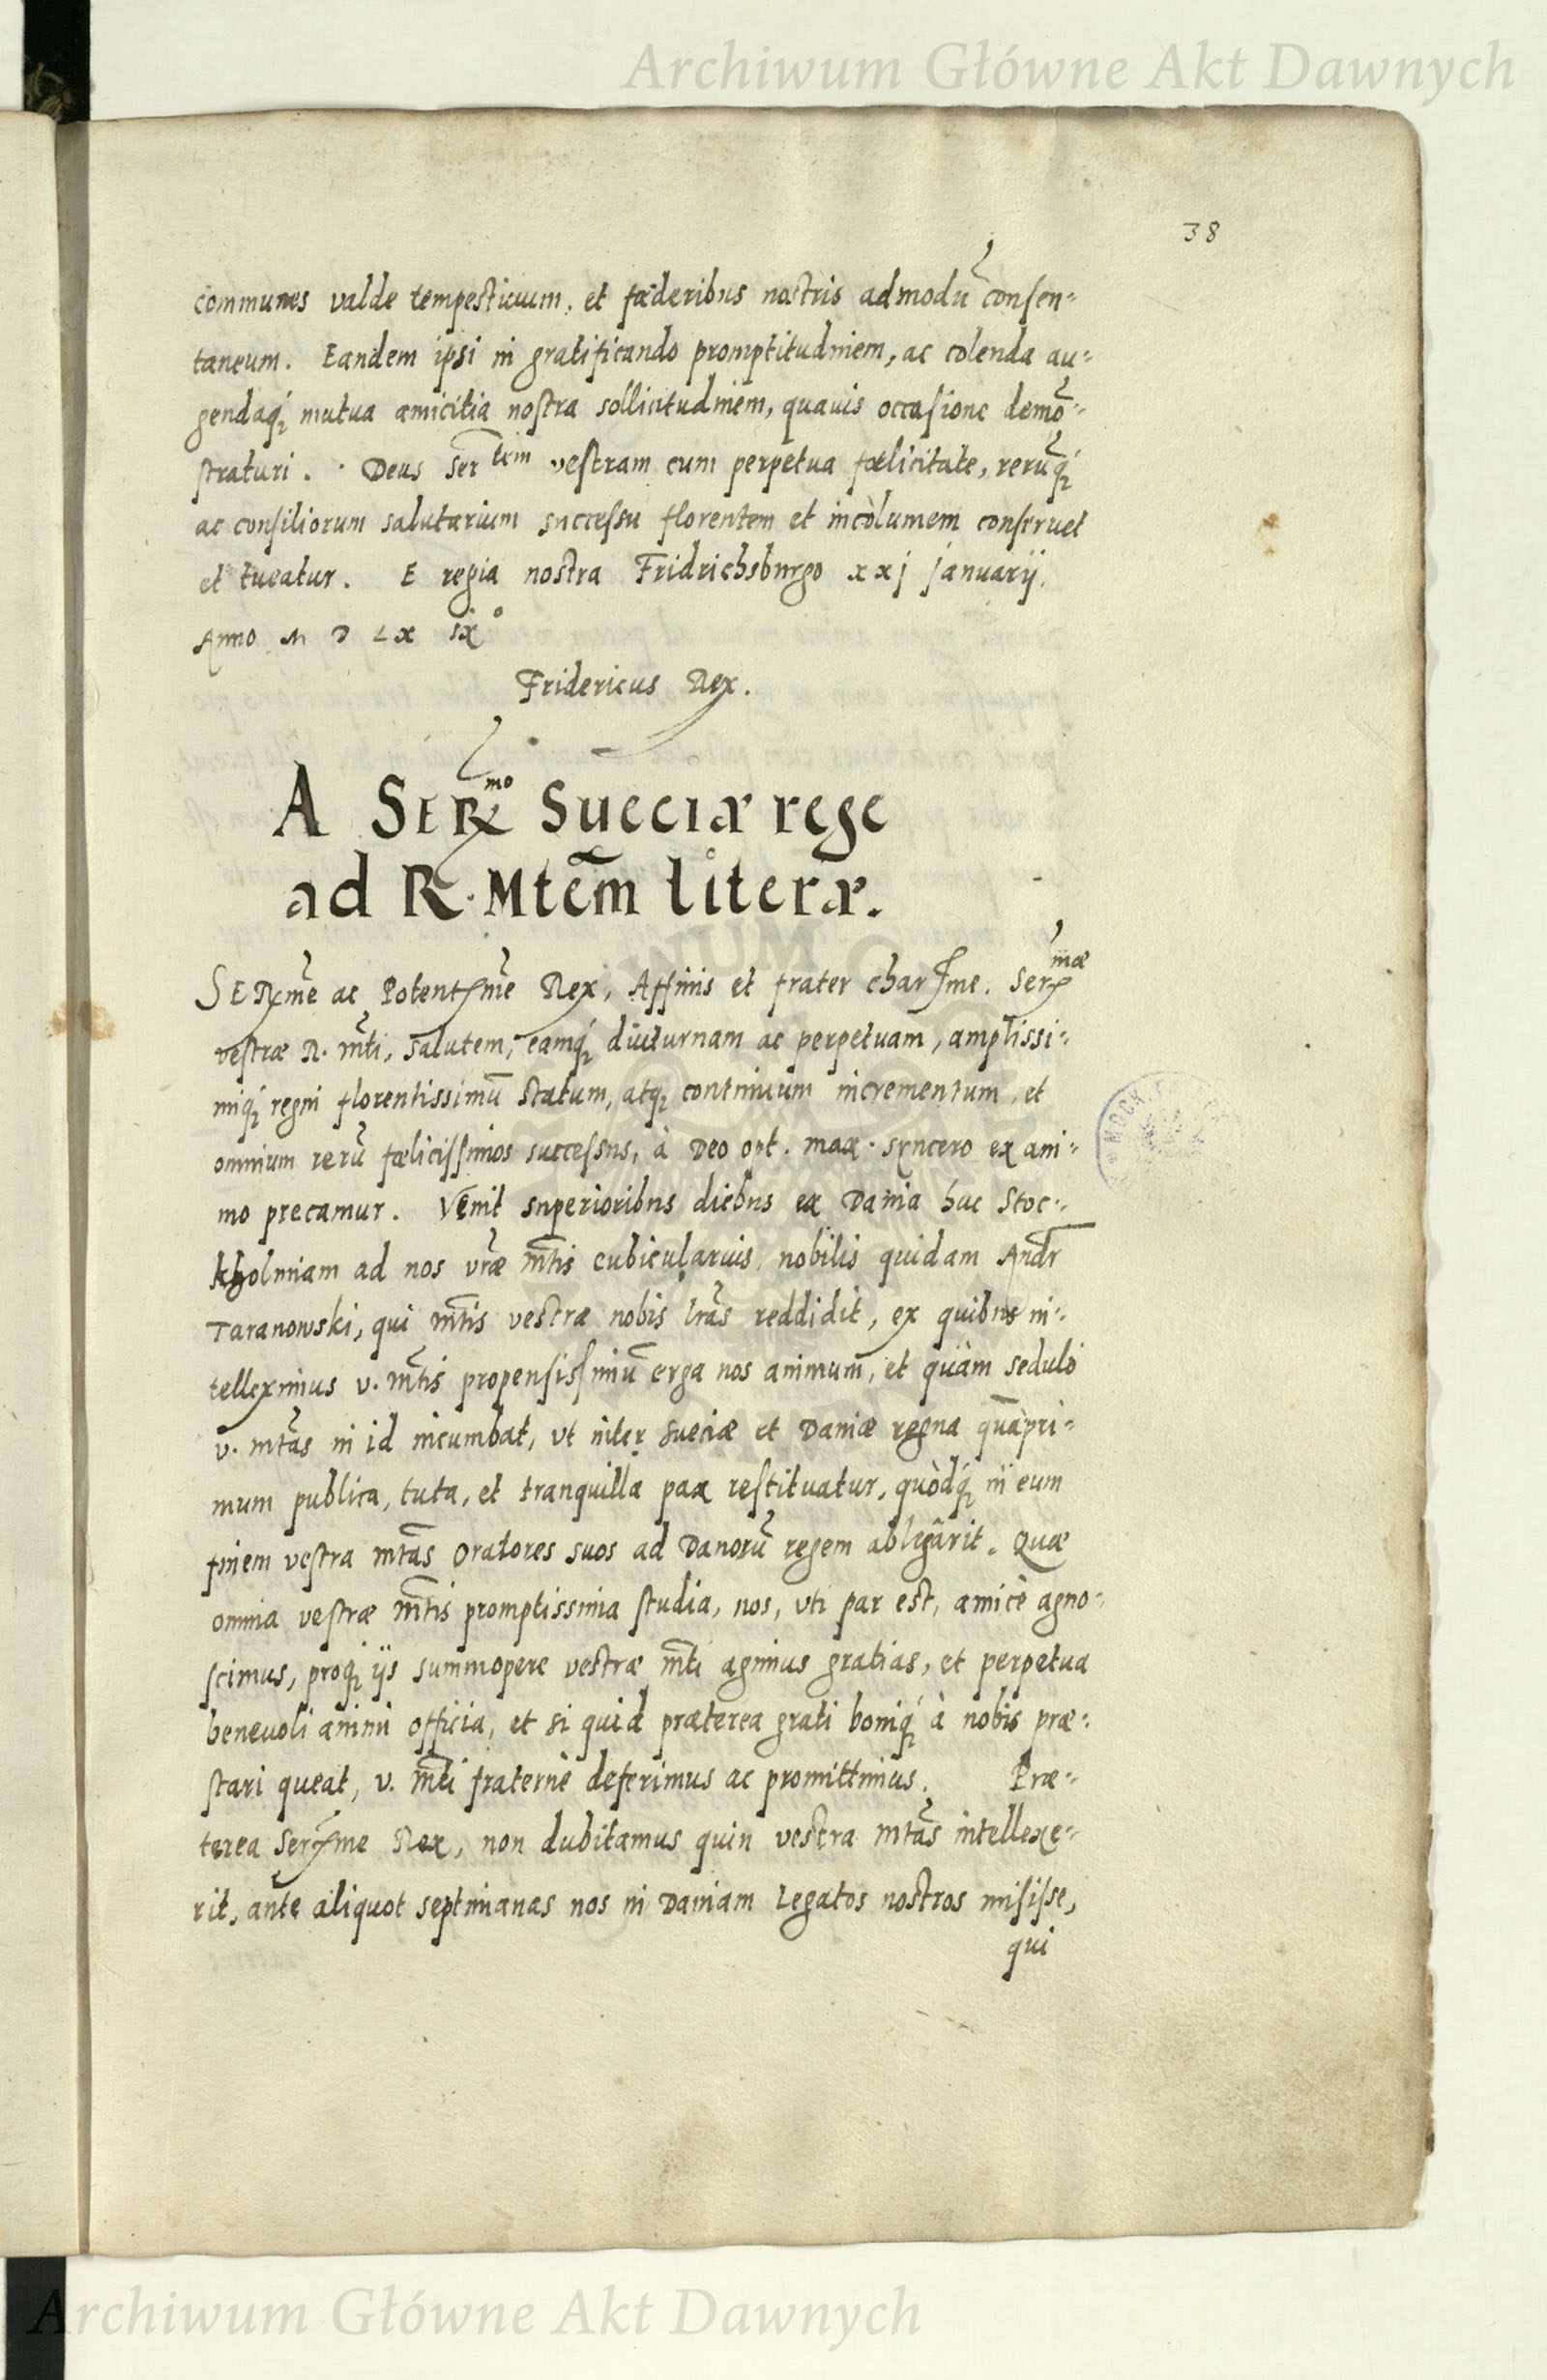 Archiwum Główne Akt Dawnych
38
communes valde tempestiuum, et fœderibus nostris admodū consen-
taneum. Eandem ipsi in gratificando promptitudinem, ac colenda au-
gendaq; mutua amicitia nostra sollicitudinem, quauis occasione demō-
straturi. Deus Ser^tem vestram cum perpetua fœlicitate, rerūq;
ac consiliorum salutarium successu florentem et incolumem conseruet
et tueatur. E regia nostra Fridrichsburgo xxj januarij.
Anno M D LX ix°
Fridericus Rex.
A SER^mo Sueciæ rege
ad R. Mtem literæ.
SERme ac Potentme Rex, Affinis et frater charme. Ser^mæ
vestræ R. mti, salutem, eamq; diuturnam ac perpetuam, amplissi-
miq; regni florentissimū statum, atq; continuum incrementum, et
omnium rerū fœlicissimos successus, à Deo opt. max. syncero ex ani-
mo precamur. Venit superioribus diebus ex Dania huc Stoc-
kholmiam ad nos vræ mtis cubicularius nobilis quidam Andr
Taranowski, qui mtis vestræ nobis lras reddidit, ex quibus in-
telleximus v. mtis propensissimū erga nos animum, et quàm sedulò
v. mtas in id incumbat, vt inter Sueciæ et Daniæ regna quāpri-
mum publica, tuta, et tranquilla pax restituatur, quòdq; in eum
finem vestra mtas Oratores suos ad Danorū regem ablegârit. Quæ
omnia vestræ mtis promptissima studia, nos, vti par est, amicè agno-
scimus, proq; ijs summopere vestræ mti agimus gratias, et perpetua
beneuoli animi officia, et si quid præterea grati boniq; à nobis præ-
stari queat, v. mti fraternè deferimus ac promittimus. Præ-
terea Serme Rex, non dubitamus quin vestra mtas intellexe-
rit, ante aliquot septimanas nos in Daniam Legatos nostros misisse,
qui
Archiwum Główne Akt Dawnych